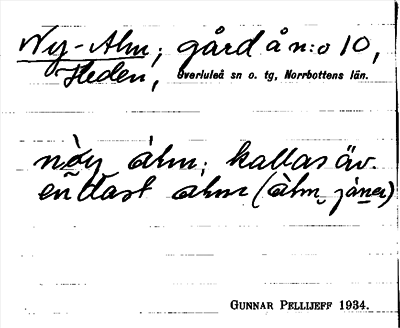 Ny-Alm; gård å n:o 10,
Heden, Överluleå sn o. tg, Norrbottens län.
nòy àlm; kallas äv.
endast alm (àlm, jàner)
GUNNAR PELLIJEFF 1934.